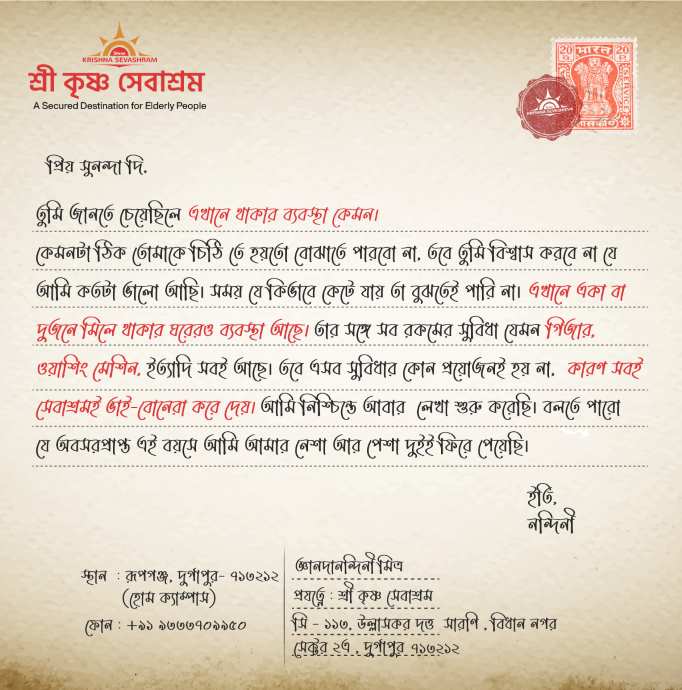 Shree
KRISHNA SEVASHRAM
শ্রী কৃষ্ণ সেবাশ্রম
A Secured Destination for Elderly People
20 भारत 20
SERVICE
KRISHNA SEVASHRAM
প্রিয় সুনন্দা দি,
তুমি জানতে চেয়েছিলে এখানে থাকার ব্যবস্থা কেমন।
কেমনটা ঠিক তোমাকে চিঠি তে হয়তো বোঝাতে পারবো না, তবে তুমি বিশ্বাস করবে না যে
আমি কতটা ভালো আছি। সময় যে কিভাবে কেটে যায় তা বুঝতেই পারি না। এখানে একা বা
দুজনে মিলে থাকার ঘরেরও ব্যবস্থা আছে। তার সঙ্গে সব রকমের সুবিধা যেমন গিজার,
ওয়াশিং মেশিন, ইত্যাদি সবই আছে। তবে এসব সুবিধার কোন প্রয়োজনই হয় না, কারণ সবই
সেবাশ্রমই ভাই-বোনেরা করে দেয়। আমি নিশ্চিন্তে আবার লেখা শুরু করেছি। বলতে পারো
যে অবসরপ্রাপ্ত এই বয়সে আমি আমার নেশা আর পেশা দুইই ফিরে পেয়েছি।
ইতি,
নন্দিনী
স্থান : রূপগঞ্জ, দুর্গাপুর- ৭১৩২১২
(হোম ক্যাম্পাস)
ফোন : +৯১ ৯৩৩৩৭০৯৯৫০
জ্ঞানদানন্দিনী মিত্র
প্রযত্নে : শ্রী কৃষ্ণ সেবাশ্রম
সি - ১১৩, উল্লাসকর দত্ত সারণি , বিধান নগর
সেক্টর ২এ , দুর্গাপুর ৭১৩২১২